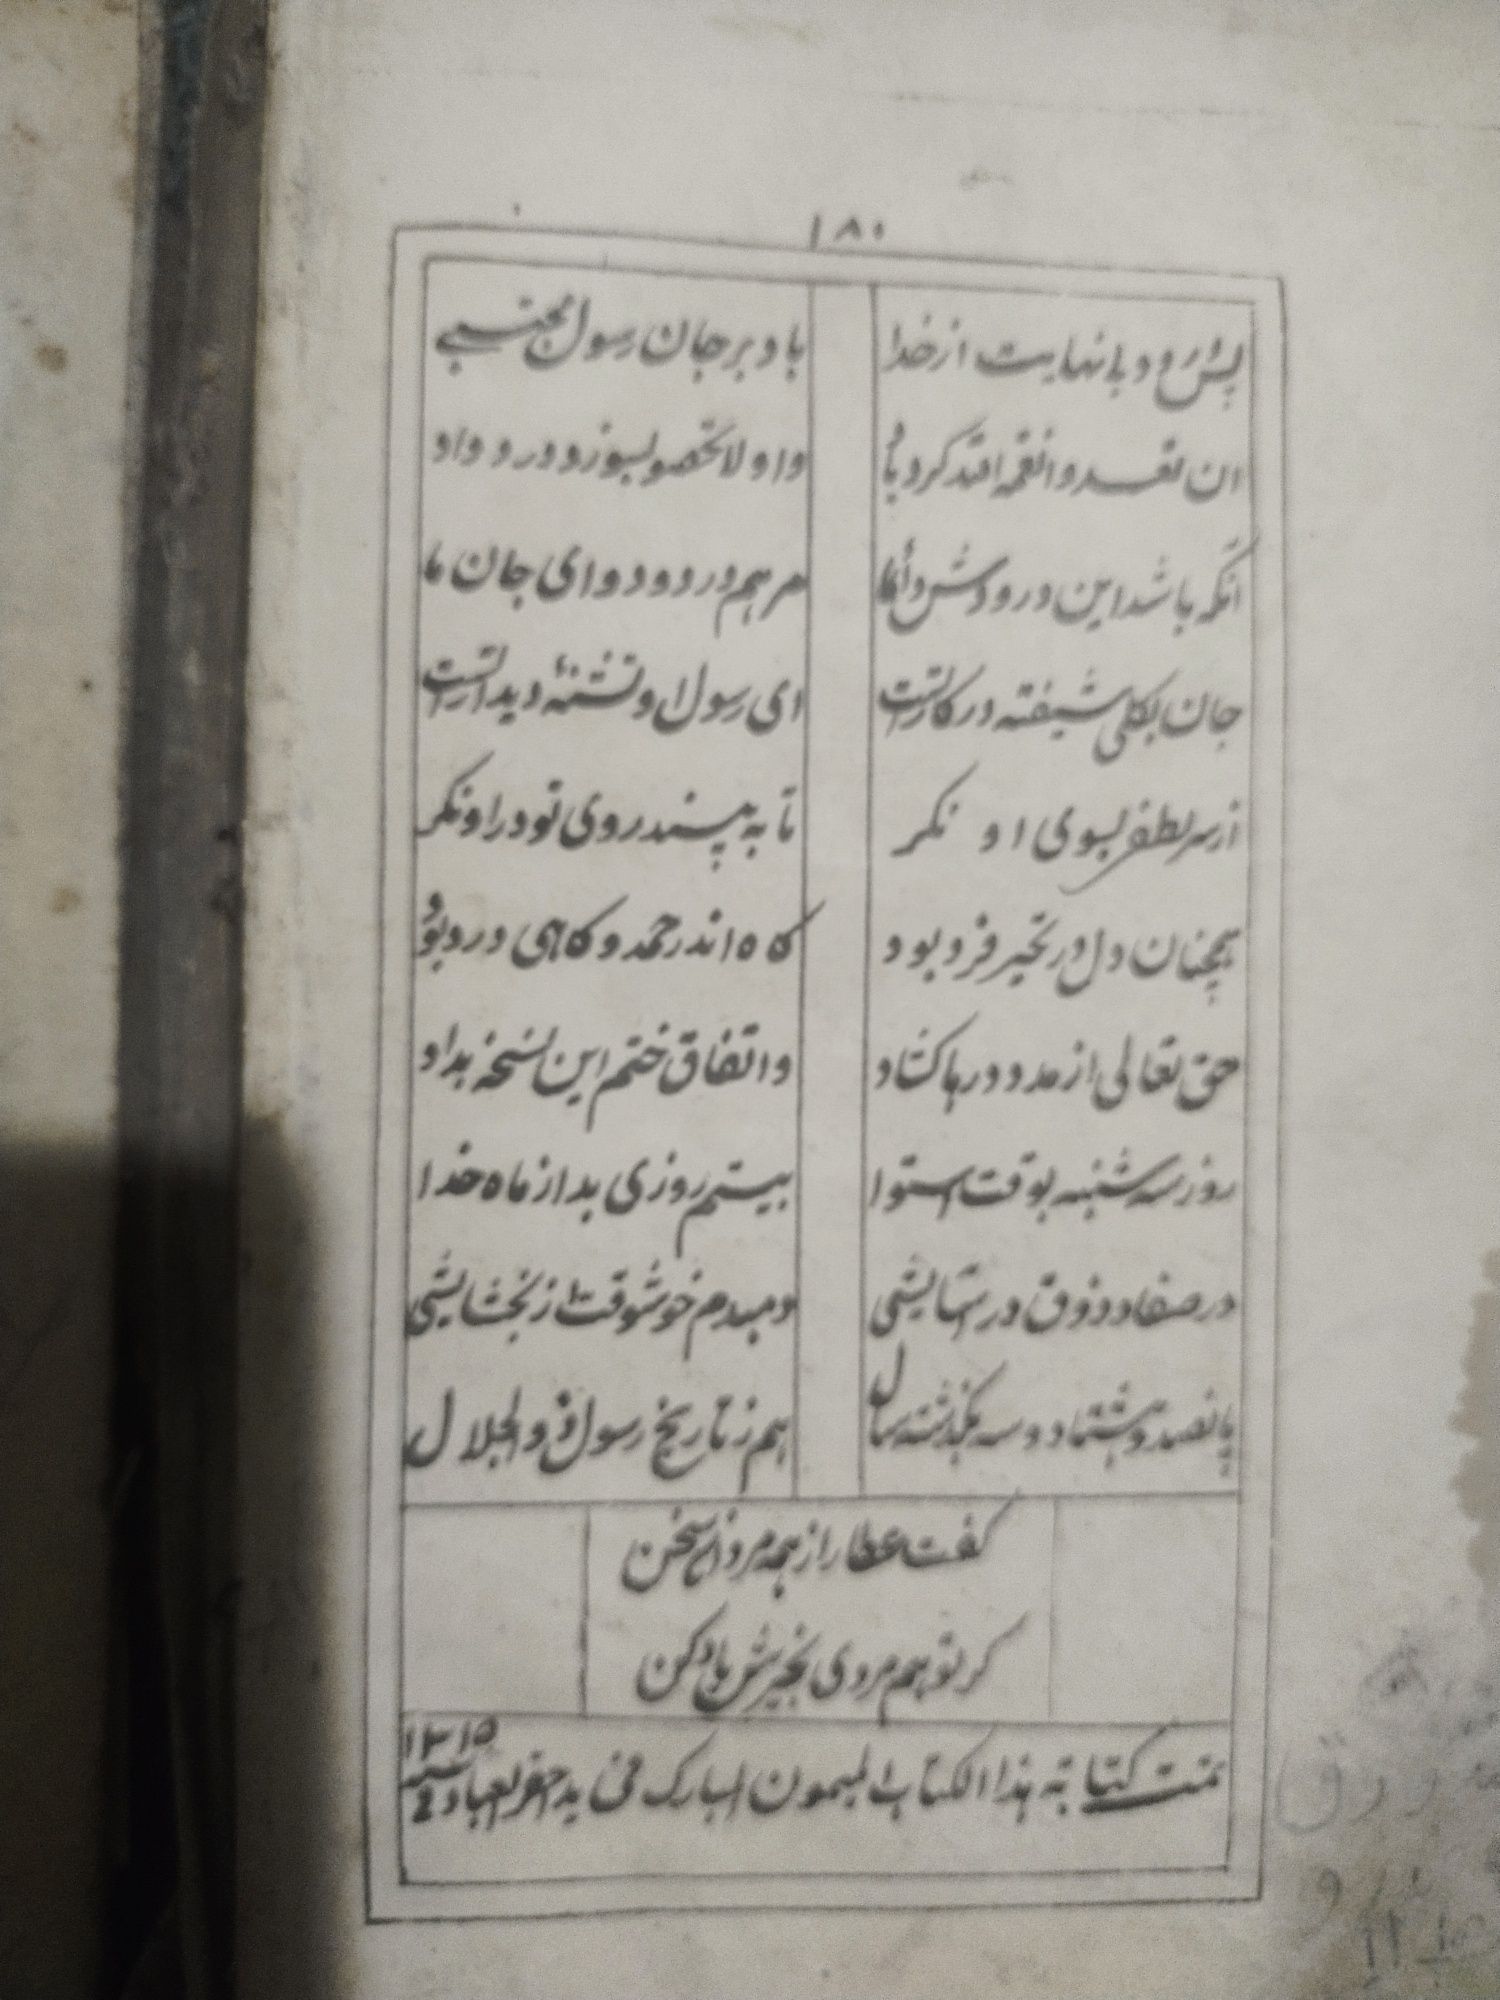 ۱۸۰
پس درود بی نهایت از خدا باد بر جان رسول مجتبی
ان تعد وا نعمه الله کرد یاد واو لا تحصو بسوز و درد داد
انکه باشد این درودش دائما مرهم درد و دوای جان ما
جان بکلی شیفته در کار تست ای رسول او تشنهٔ دیدار تست
از سر لطفی بسوی او نکر تا به پیند روی تو در او نکر
همچنان دل در تحیر فرد بود کاه اندر حمد و کاهی درد بود
حق تعالی از مدد درها کشاد و اتفاق ختم این نسخه بداد
روز سه شنبه بوقت استوا بیستم روزی بد از ماه خدا
در صفا و ذوق در ستایشی دمبدم خوشوقت از بخشایشی
پانصد و هشتاد و سه بکذشته سال هم ز تاریخ رسول ذو الجلال
کفت عطار از همه مردان سخن
کر تو هم مردی بخیرش یاد کن
تمت کتابته هذا الکتاب المیمون المبارک فی ید احقر العباد سنه ۱۳۱۵